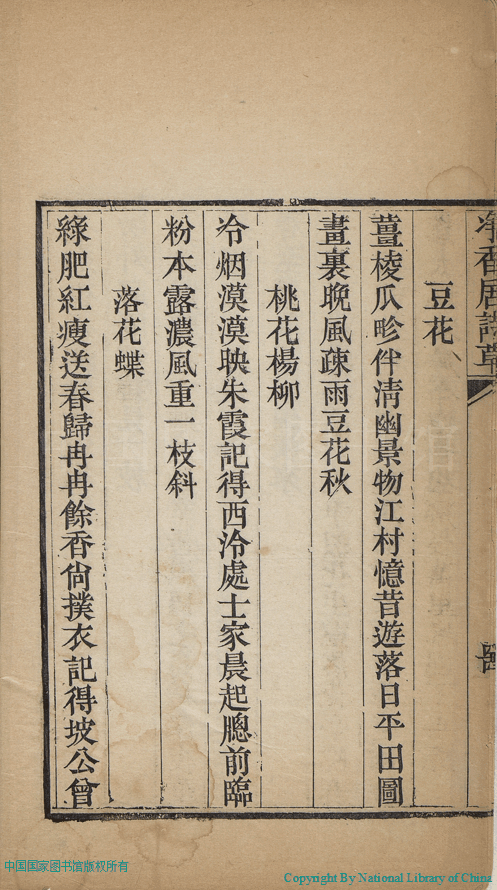 豆花
薑棱瓜畛伴淸幽景物江村憶昔遊落日平田圖
畫裏晚風疎雨豆花秋
桃花楊柳
冷烟漠漠映朱霞記得西泠處士家晨起牕前臨
粉本露濃風重一枝斜
落花蝶
綠肥紅瘦送春歸冉冉餘香尙撲衣記得坡公曾
中国国家图书馆版权所有
Copyright By National Library of China